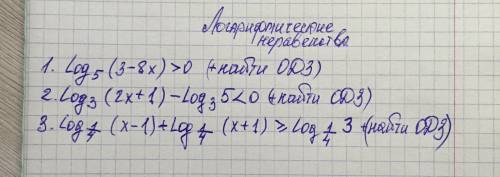 Логарифмические
неравенства
1. Log₅ (3-8x) >0 (+найти ОДЗ)
2. Log₃ (2x+1) - Log₃ 5<0 (+найти ОДЗ)
3. Log_1/4 (x-1)+Log_1/4 (x+1) ≥ Log_1/4 3 (+найти ОДЗ)